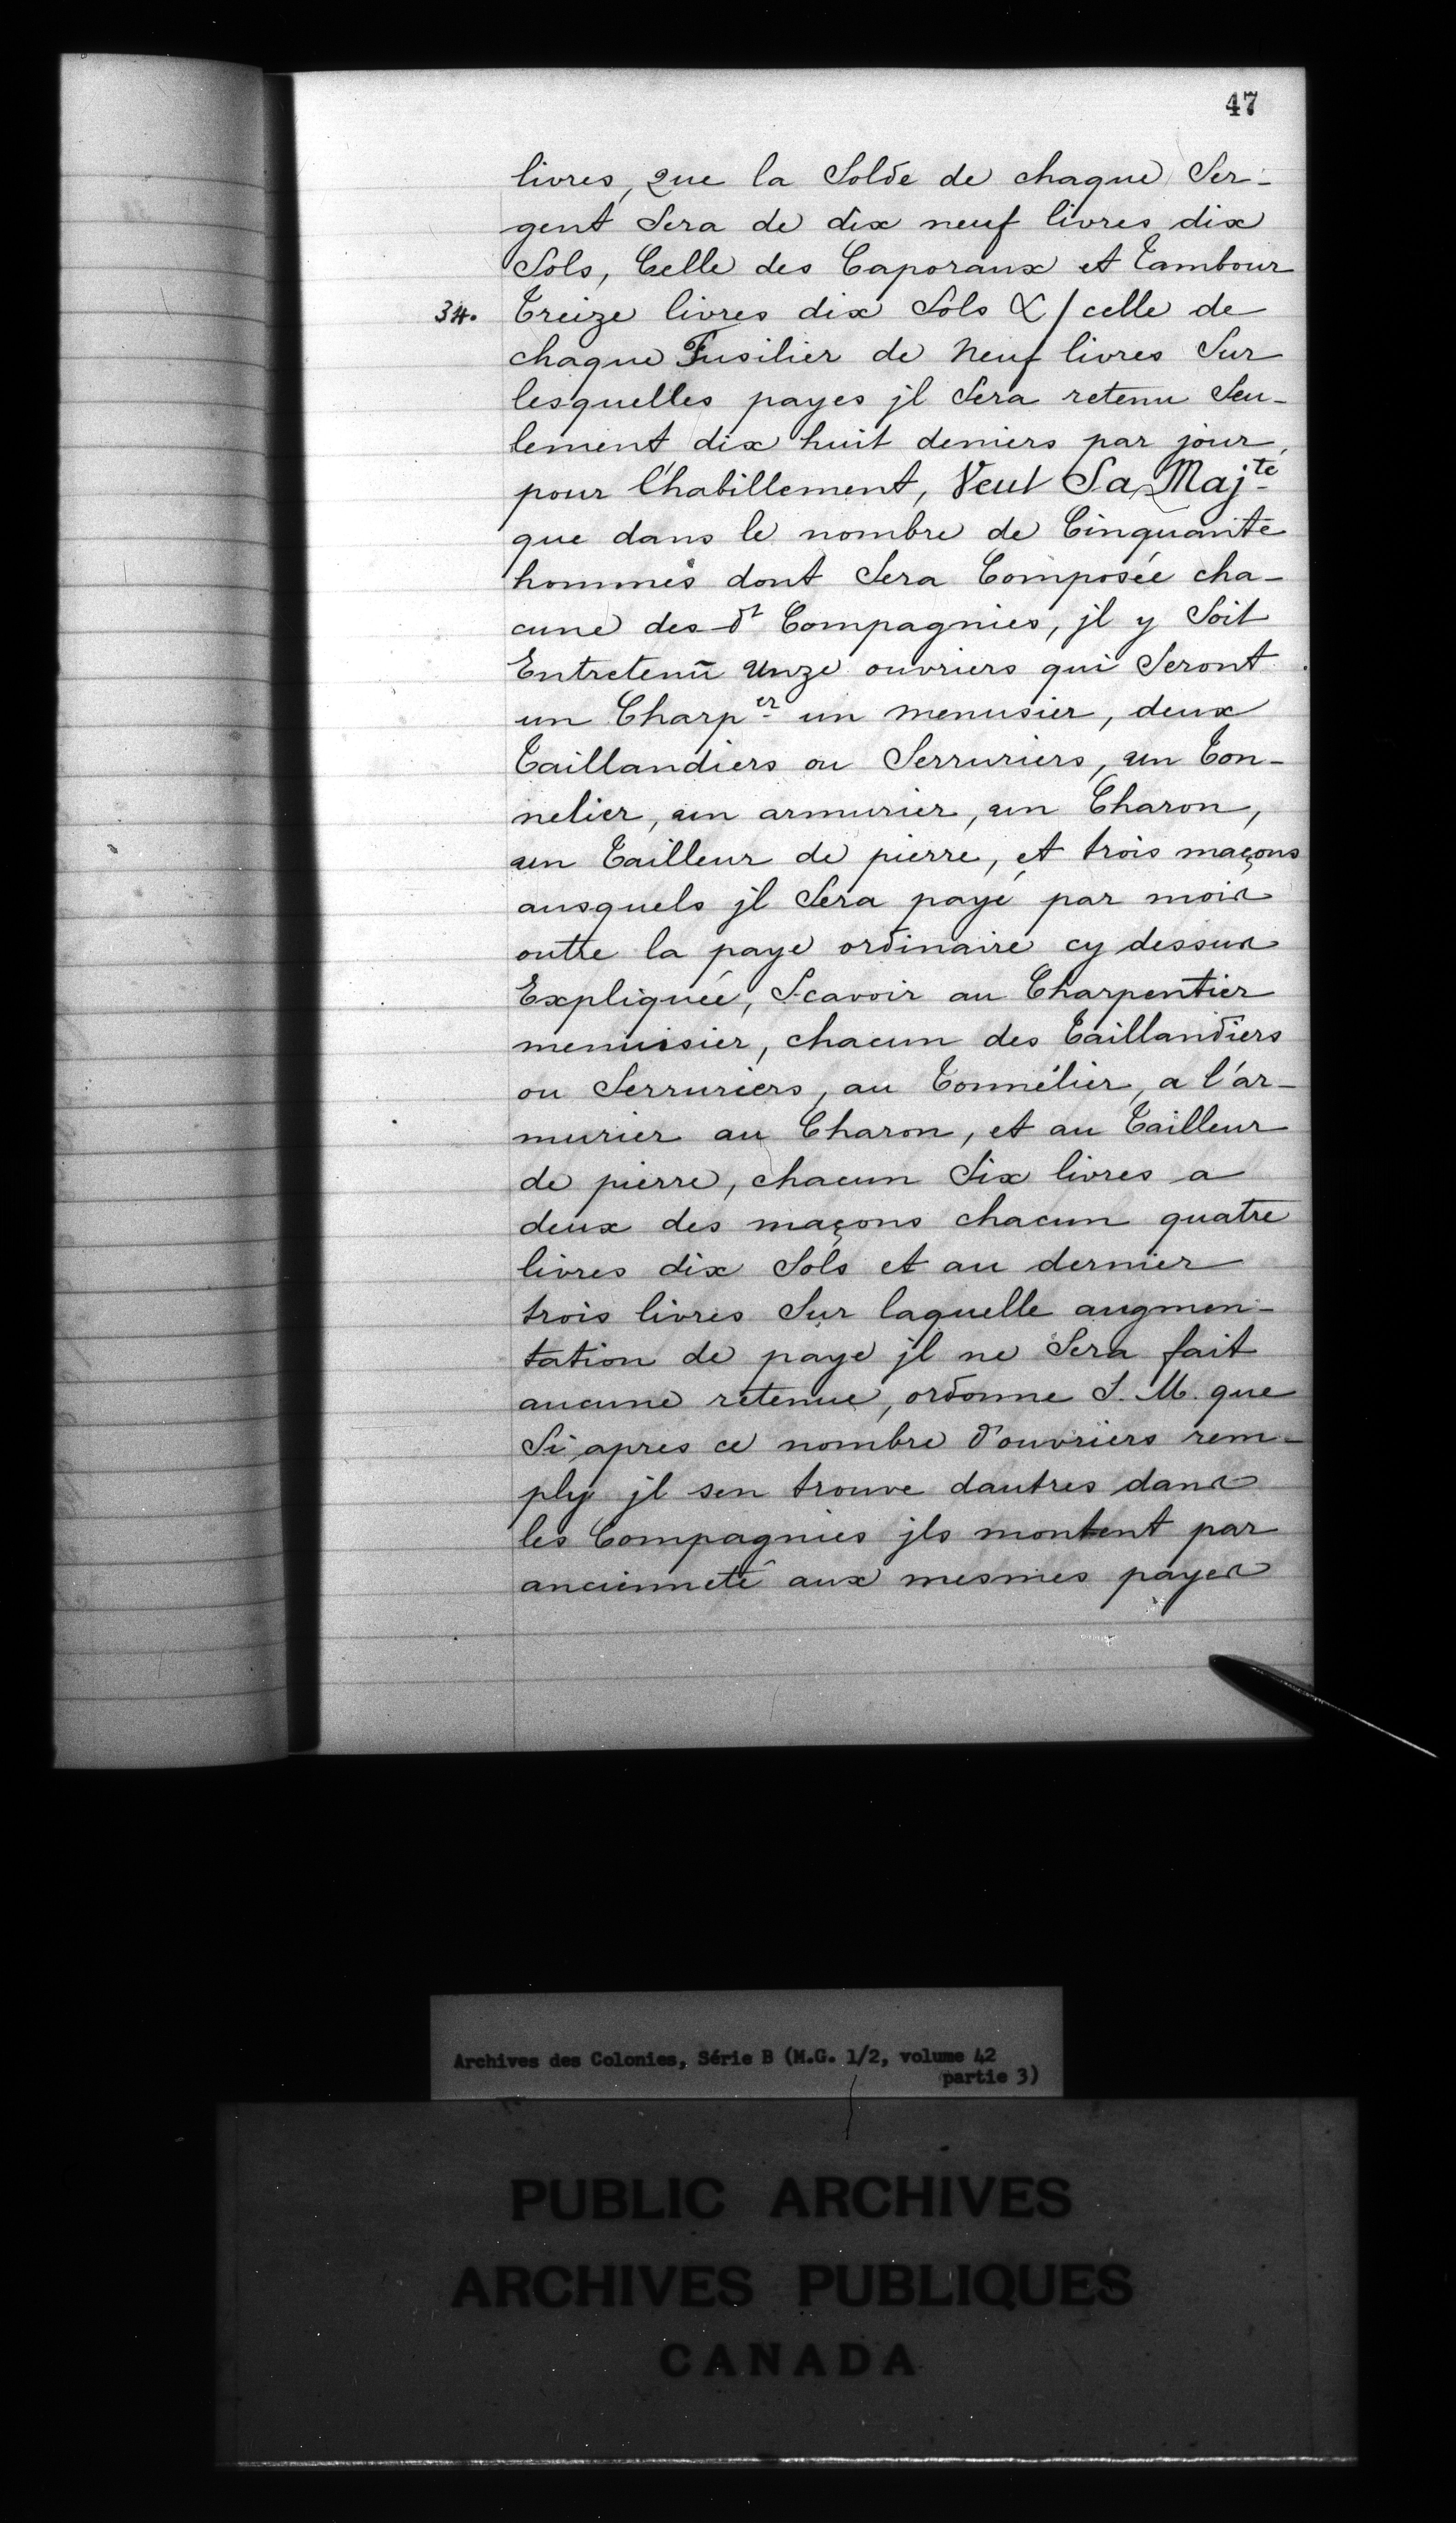 47
livres, que la Solde de chaque Ser-
gent Sera de dix neuf livres dix
Sols, Celle des Caporaux et Tambour
34. Treize livres dix Sols & / celle de
chaque Fusilier de Neuf livres Sur
lesquelles payes jl Sera retenu Seu-
lement dix huit deniers par jour,
pour l'habillement, Veut Sa Maj.te
que dans le nombre de Cinquante
hommes dont Sera Composée cha-
cune des dt Compagnies, jl y Soit
Entretenū Unze ouvriers qui Seront
un Charp.er un menusier, deux
Taillandiers ou Serruriers, un Ton-
nelier, un armurier, un Charon,
un Tailleur de pierre, et trois maçons
ausquels jl Sera payé par mois
outre la paye ordinaire cy dessus
Expliquée, Scavoir au Charpentier
menuisier, chacun des Taillandiers
ou Serruriers, au Tonnélier, a l'ar-
murier au Charon, et au Tailleur
de pierre, chacun Six livres a
deux des maçons chacun quatre
livres dix Sols et au dernier
trois livres Sur laquelle augmen-
tation de paye jl ne Sera fait
aucune retenue, ordonne S. M. que
Si apres ce nombre d'ouvriers rem-
ply jl sen trouve dautres dans
les Compagnies jls montent par
ancienneté aux mesmes payes
Archives des Colonies, Série B (M.G. 1/2, volume 42
partie 3)
PUBLIC ARCHIVES
ARCHIVES PUBLIQUES
CANADA